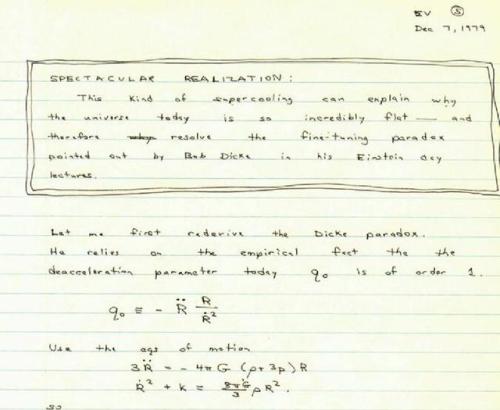 EV ⑤
Dec 7, 1979
SPECTACULAR REALIZATION:
This kind of supercooling can explain why
the universe today is so incredibly flat — and
therefore resolve the fine-tuning paradox
pointed out by Bob Dicke in his Einstein day
lectures.
Let me first rederive the Dicke paradox.
He relies on the empirical fact the the
deacceleration parameter today q₀ is of order 1.
q₀ ≡ - R̈ R/Ṙ²
Use the eqs of motion
3R̈ = - 4πG (ρ+3p) R
Ṙ² + k = 8πG/3 ρR².
so